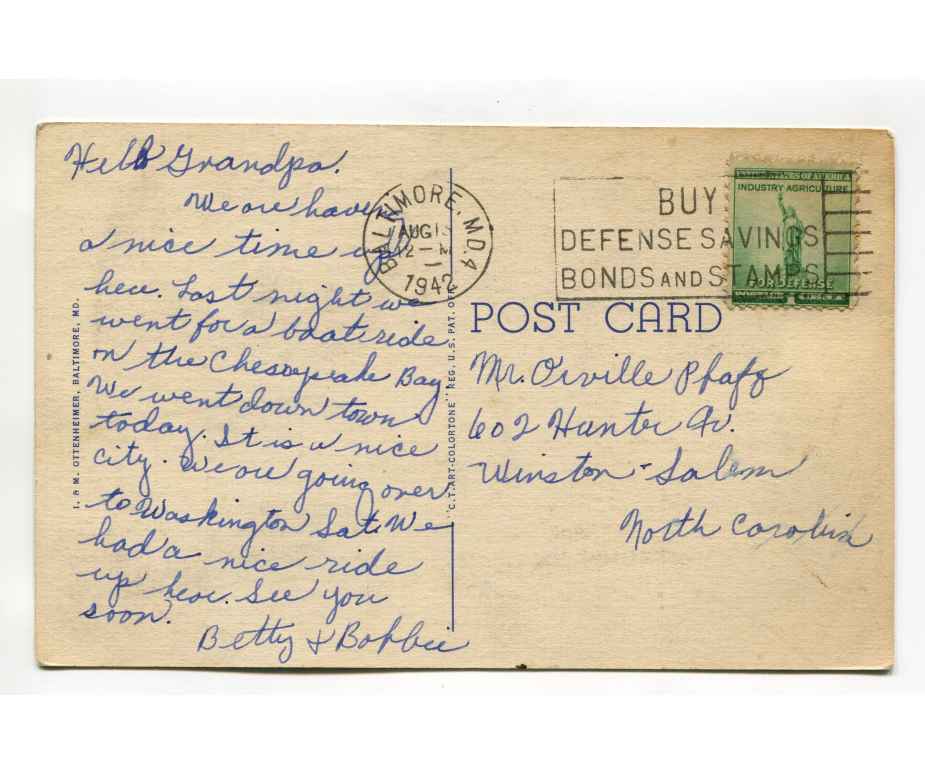 Hello Grandpa.
We are having
a nice time up
here. Last night we
went for a boat ride
on the Chesapeake Bay.
We went down town
today. It is a nice
city. We are going over
to Washington Sat. We
had a nice ride
up here. See you
soon.
Betty & Bobbie
I. & M. OTTENHEIMER, BALTIMORE, MD.
"C.T. ART-COLORTONE" REG. U.S. PAT. OFF.
BALTIMORE, MD. 4
AUG
12 - M
1942
BUY
DEFENSE SAVINGS
BONDS AND STAMPS
UNITED STATES OF AMERICA
INDUSTRY AGRICULTURE
FOR DEFENSE
POSTAGE 1¢
POST CARD
Mr. Orville Pfaff
602 Hunter Av.
Winston-Salem
North Carolina